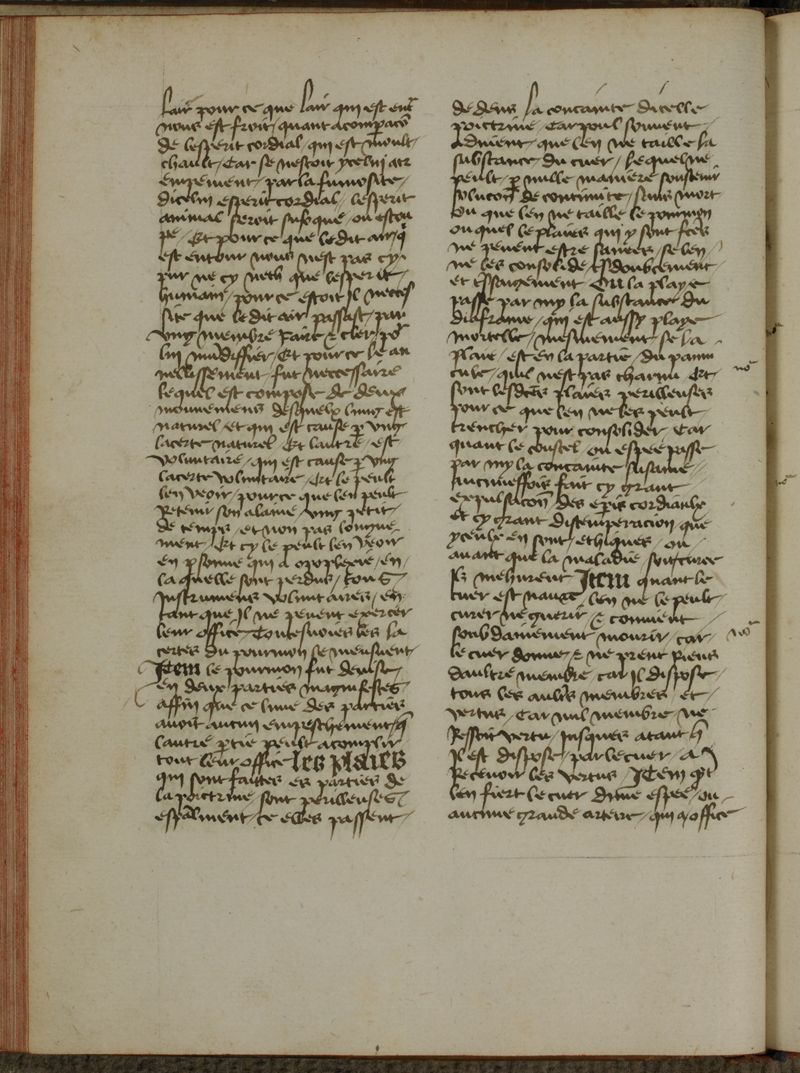 lair pour ce que lair qui est ent
nous est froit / quant acompacō
de lesperit cordial / qui est moult /
chault / Car se nestoit ycelui atr
empement / par la fumosite /
dicelui esperit cordial / lesperit
animal seroit sufoque / ou estou
pe / Et pour ce que ledit air / q̄
est entour nous nest pas cy /
pur ne cy neth que lesperit /
humain / pour ce estoit Il necces
site que ledit air passast / par
vng membre rare & cler / po͛
lui mūdiffier / Et pour ce le an
nellissement / fut neccessaire
lequel est compose de deux
mouuemens desquelx lung est
naturel / et qui est cause p̲ vng
lacerte naturel Et lautre / est
voluntaire / qui est cause p̲ vng
lacerte voluntaire / Et le peult
len veoir / pour ce que len peult
Retenir son alaine / vng petit /
de temps / et non pas longue
ment / Et cy le peult len veoir
en p̲sonne qui a opoplexie / en /
laquelle sont perdus / tous
Instrumens voluntaires / en
tant que Il ne peuent exercer
leur office Toutesuoies les la
certes du poumon se meuuent
Item le poumon fut deuise /
en deux parties magnifestes
affin que ce lune des parties
auoit aucun empeschement / q̄
lautre p̲tie peult acomplir
tout leur office les plaies
qui sont faittes es parties de
la poictrine sont perilleuses
esp̄alment / ce elles passent /
de dens la concauite dicelle
poictrine / Car poul souuent /
aduient / que len ne taille la
substance du cuer / lequel ne
peult / p̲ nulle maniere soustenir
solucōn de continuite / sans mort
Ou que len ne taille le poumon
ou quel les plaies qui y sont fc̄es
ne peuent estre sanees / se len /
ne les consolide tsdoulcement /
et Ou la playe
passe par my la substance du
diaframe / qui est aussy playe
mortelle / mesmement se la
plaie / est en la partie / du panni
cule / quil nest pas charnu Et /
sont lesdc̄es plaies perilleuses
pour ce que len ne les peult /
trencher pour consolider Car
quant le coustel ou espee passe
par my la concauite susame /
aucuneffois fait cy grant
expulsacōn des ep̄is cordiaulx
et cy grant distemperacion que
yceulx en sont / ethiques / ou
auant que la maladie soit curee
Ilz meheurent Item quant le
cuer est naure / len ne le peult /
curer ne guerir / & conuient
soubdainement mourir / car
le cuer donne / & ne prent Riens
daultre membre / car Il dispose
tous les aultrs membres et /
vertus / Car nul membre / ne
Ressoit vertu / Jusques atant q̄
Il est dispose / par le cuer / a
Receuoir les vertus / Item q̄t
len fiert le cuer dune espee / ou
aucune grande artere / qui a office